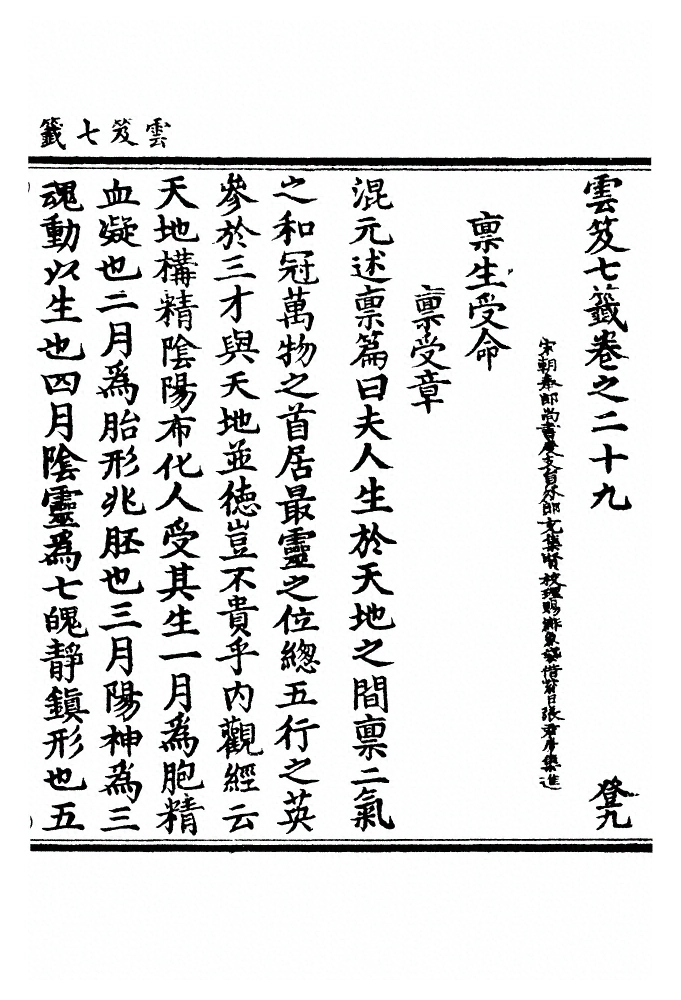 雲笈七籤
雲笈七籤卷之二十九 登九
宋朝奉郎尚書度支員外郎充集賢校理賜緋魚袋借紫臣張君房集進
禀生受命
禀受章
混元述禀篇曰夫人生於天地之間禀二氣
之和冠萬物之首居最靈之位總五行之英
參於三才與天地並德豈不貴乎内觀經云
天地構精陰陽布化人受其生一月為胞精
血凝也二月為胎形兆胚也三月陽神為三
魂動以生也四月陰靈為七魄靜鎮形也五